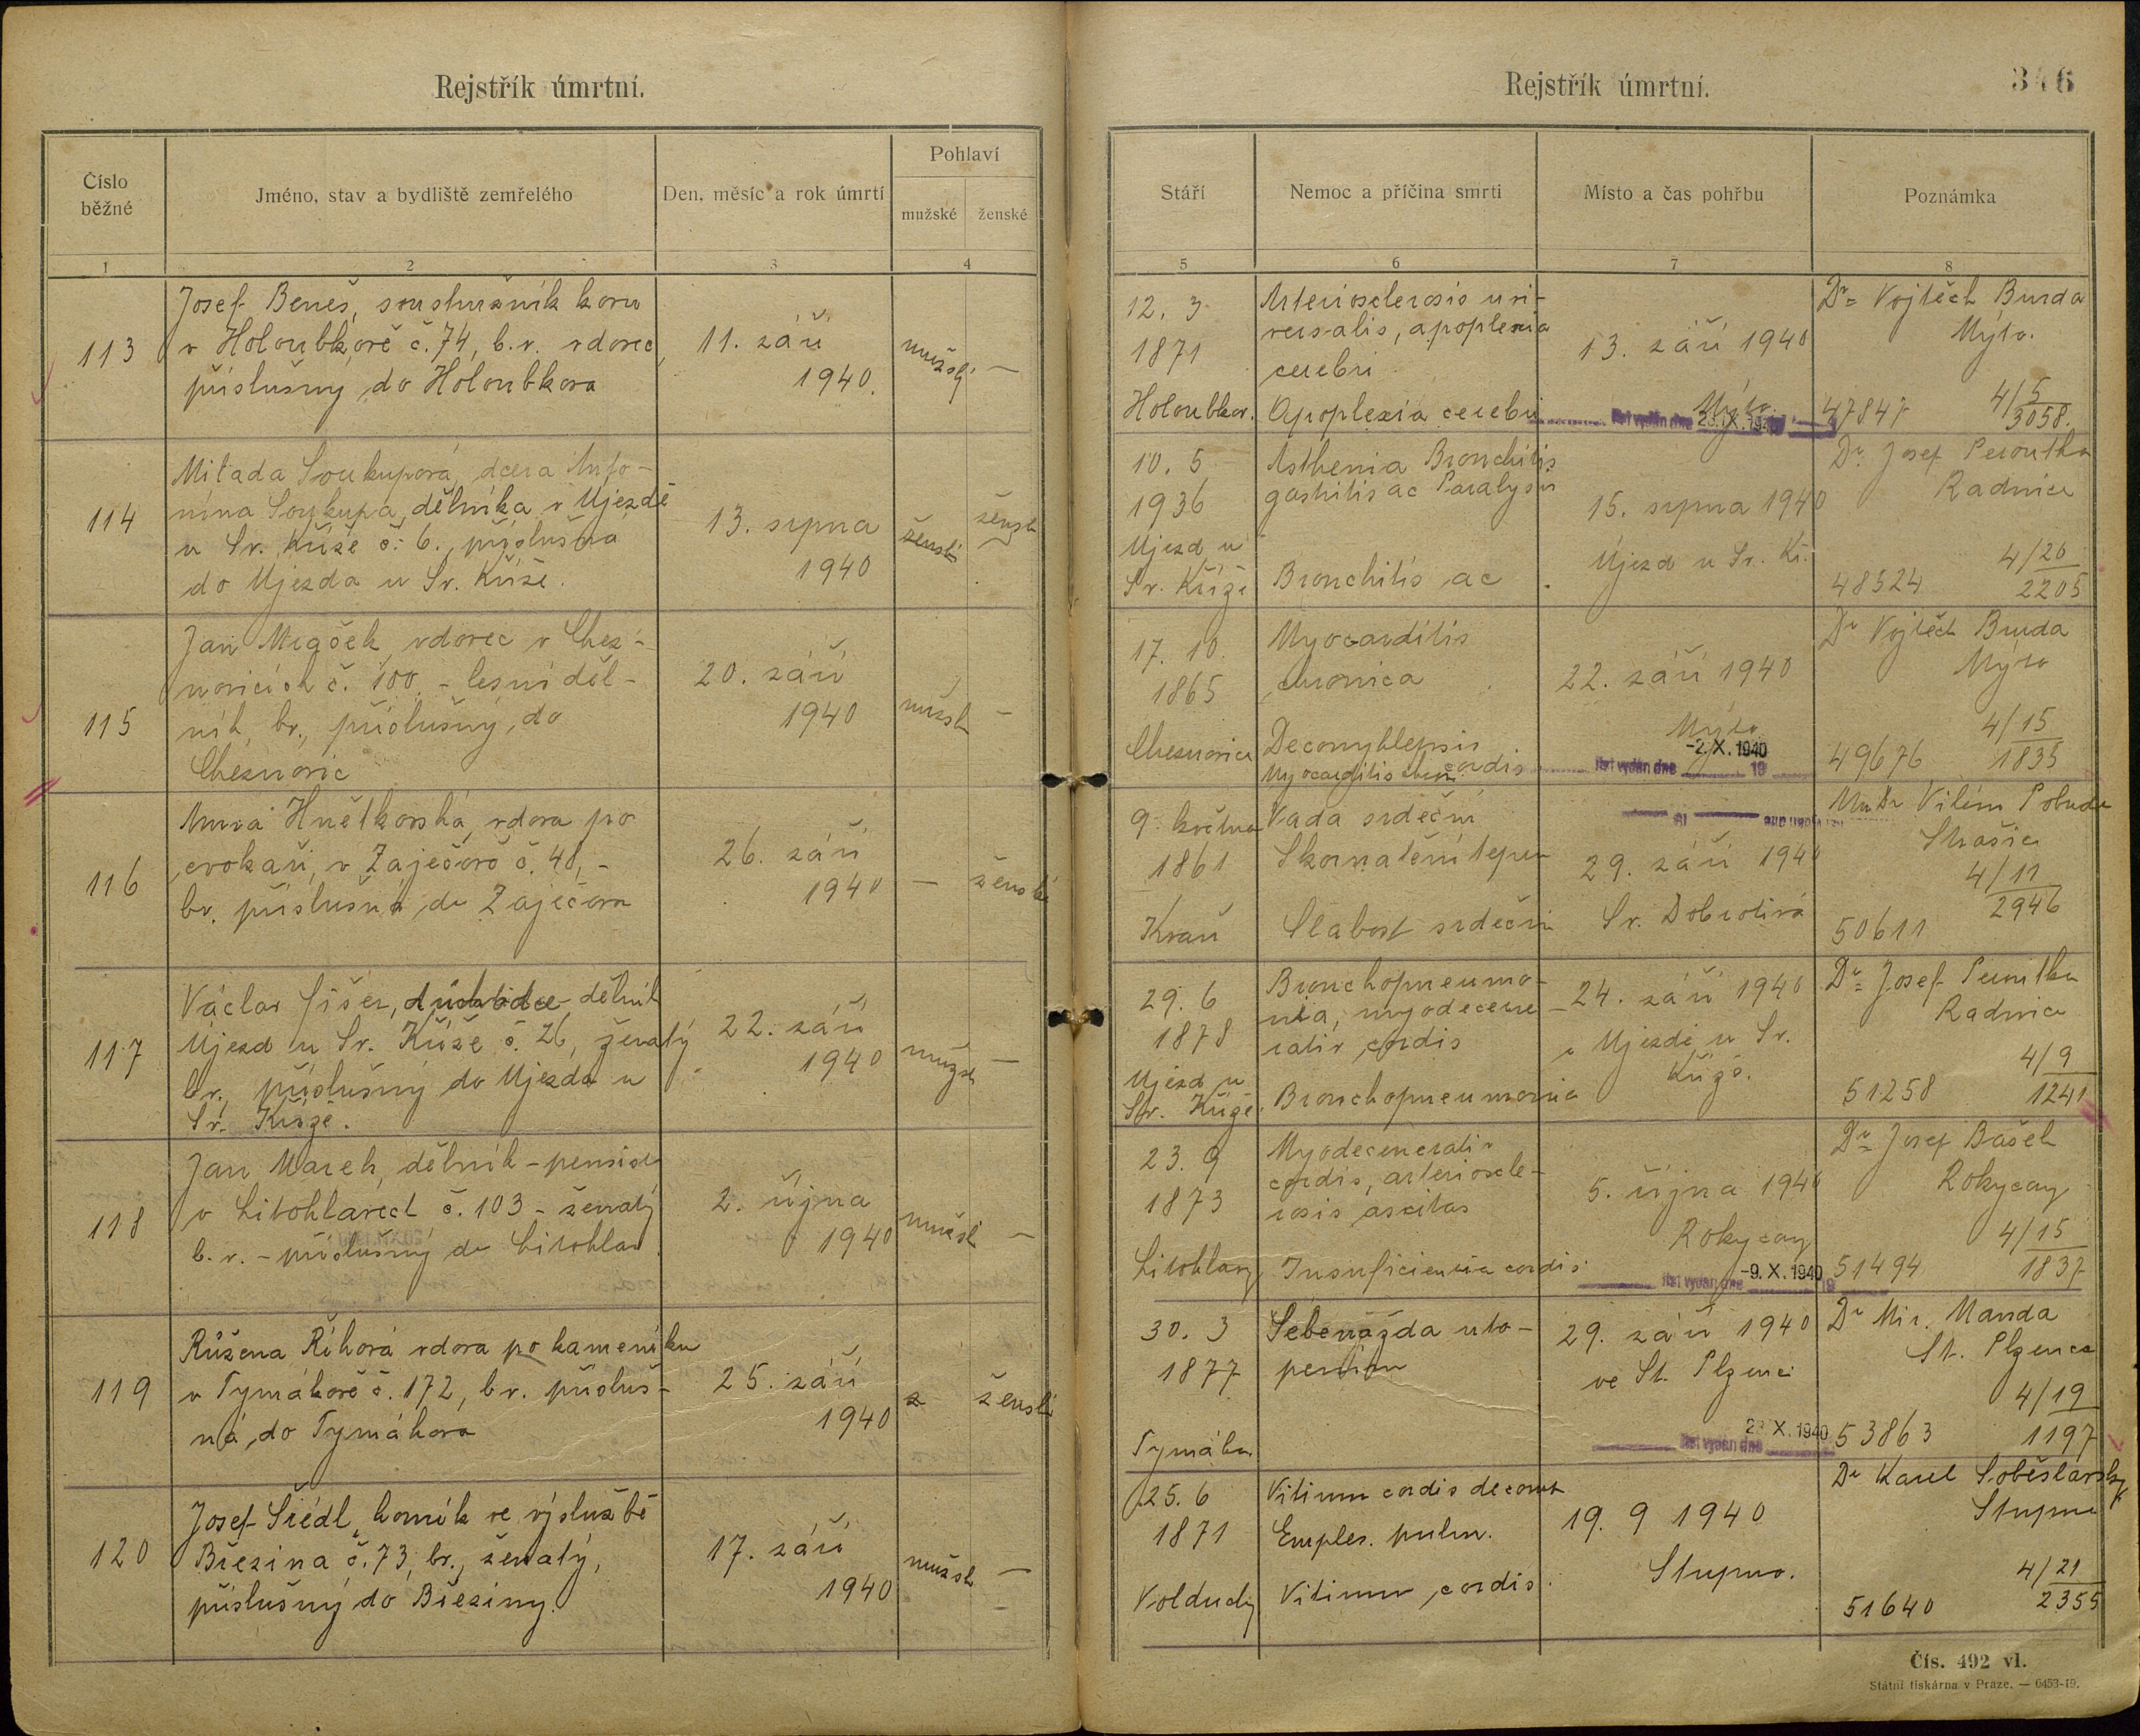 Rejstřík úmrtní.
Číslo běžné
Jméno, stav a bydliště zemřelého
Den, měsíc a rok úmrtí
Pohlaví
mužské
ženské
1
2
3
4
113
Josef Beneš, soustružník kovu
v Holoubkově č. 74, b.v. vdovec,
příslušný do Holoubkova
11. září
1940.
mužský
—
114
Milada Soukupová, dcera Anto-
nína Soukupa, dělníka v Ujezdě
u Sv. Kříže č. 6., příslušná
do Ujezda u Sv. Kříže.
13. srpna
1940
ženské
žensk
115
Jan Mrgoček, vdovec v Chez-
novicích č. 100 - lesní děl-
ník, bv., příslušný do
Cheznovic
20. září
1940
mužsk
—
116
Anna Hnětkovská, vdova po
cvokaři, v Zaječově č. 48, -
bv. příslušná do Zaječova
26. září
1940
—
ženské
117
Václav Fišer, důchodce - dělník
Ujezd u Sv. Kříže č. 26, ženatý
bv., příslušný do Ujezda u
Sv. Kříže.
22. září
1940
mužsk
—
118
Jan Marek, dělník - pensista
v Litohlavech č. 103 - ženatý
b.v. - příslušný do Litohlav
2. října
1940
mužsk
—
119
Růžena Říhová vdova po kameníku
v Tymákově č. 172, bv. přísluš-
ná do Tymákova
25. září
1940
ženské
120
Josef Šiédl, horník ve výslužbě
Březina č. 73, bv., ženatý,
příslušný do Březiny.
17. září
1940
mužsk
—
Rejstřík úmrtní.
346
Stáří
Nemoc a příčina smrti
Místo a čas pohřbu
Poznámka
5
6
7
8
12. 3
1871
Holoubkov.
Arteriosclerosis uni-
versalis, apoplexia
cerebri
Apoplexia cerebri
13. září 1940
Mýto
list vydán dne 23. IX. 1940
Dr Vojtěch Burda
Mýto.
4/5
47847
3058.
10. 5
1936
Ujezd u
Sv. Kříže
Asthenia Bronchitis
gastritis ac Paralysis
Bronchitis ac
15. srpna 1940
Ujezd u Sv. Kř.
Dr. Josef Peroutka
Radnice
4/26
48524
2205
17. 10.
1865
Cheznovice
Myocarditis
chronica
cordis
Myocarditis chron
22. září 1940
Mýto
list vydán dne -2. X. 1940 19
Dr Vojtěch Burda
Mýto
4/15
49676
1835
9. května
1861
Kvaň
Vada srdeční
Skornatění tepen
Slabost srdeční
29. září 1940
Sv. Dobrotivá
MuDr Vilém Pobuda
Strašice
4/11
2946
50611
29. 6
1878
Ujezd u
Sv. Kříže.
Bronchopneumo-
nia, myodegene-
rativ cordis
Bronchopneumonia
24. září 1940
v Ujezdě u Sv.
Kříže.
Dr. Josef Peroutka
Radnice
4/9
51258
1241
23. 9
1873
Litohlavy
Myodegenerativ
cordis, arterioscle-
rosis ascitas
Insuficiencia cordis
5. října 1940
Rokycany
list vydán dne -9. X. 1940 19
Dr. Josef Bašek
Rokycany
4/15
51494
1837
30. 3
1877
Tymákov
Sebevražda uto-
pením
29. září 1940
ve St. Plzenci
list vydán dne X. 1940
Dr Mir. Manda
St. Plzenec
4/19
53863
1197
25. 6
1871
Volduchy
Vitium cordis decomt
pulm.
Vitium cordis.
19. 9 1940
Stupno.
Dr Karel Soběslavský
Stupno
4/21
51640
2355
Čís. 492 vl.
Státní tiskárna v Praze. — 6453-19.